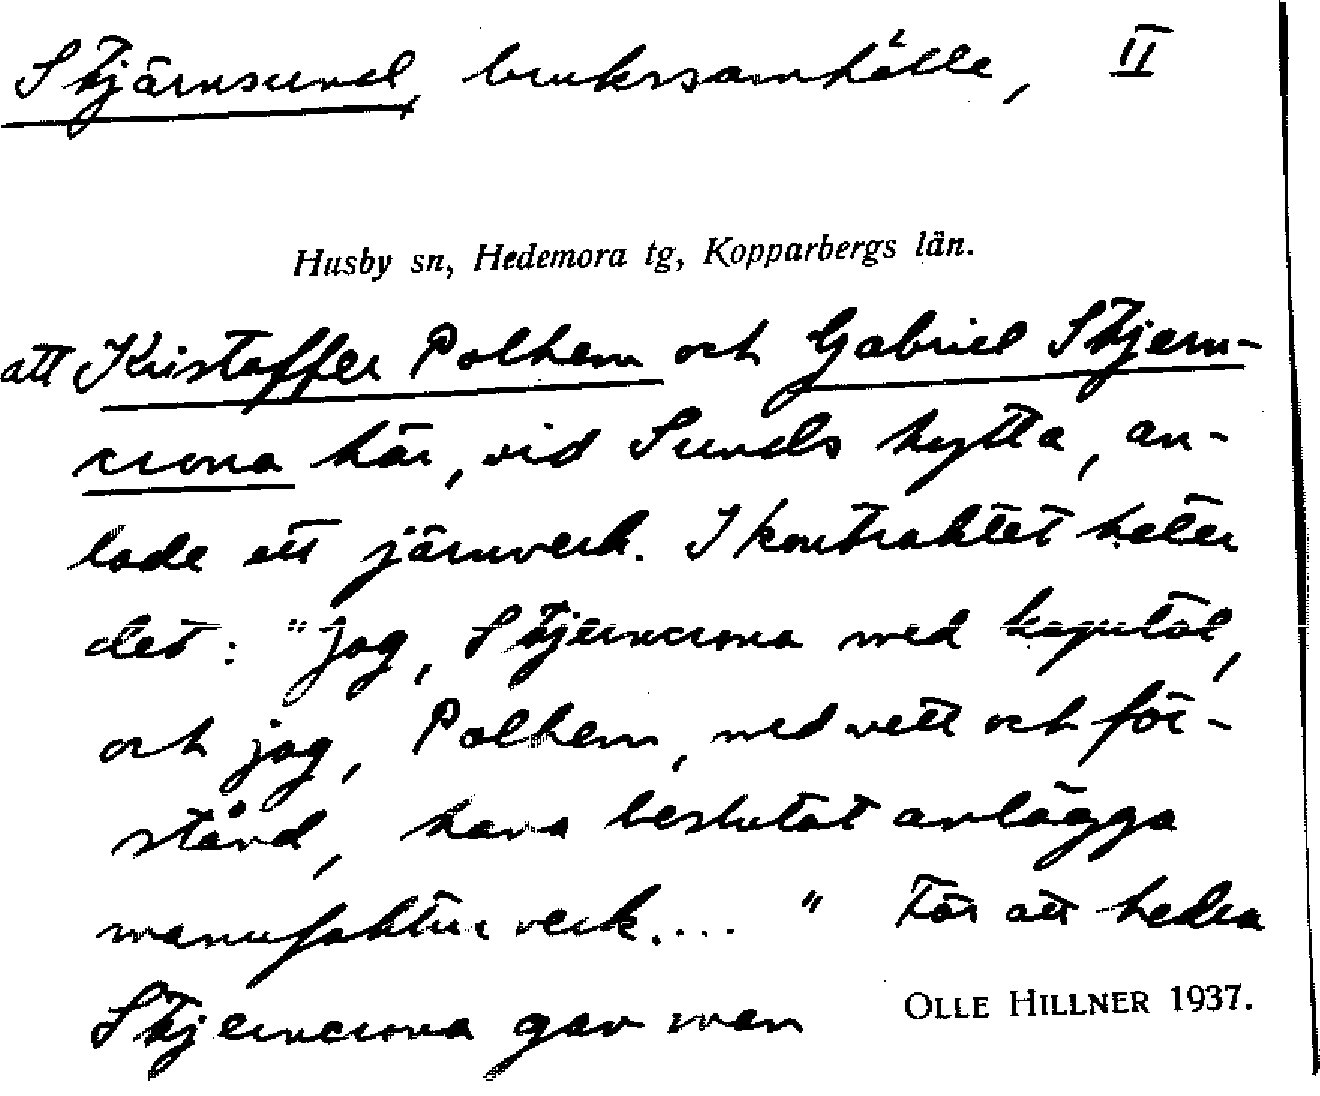 Stjärnsund, brukssamhälle, II
Husby sn, Hedemora tg, Kopparbergs län.
att Kristoffer Polhem och Gabriel Stjern-
crona här, vid Sunds hytta, an-
lade ett järnverk. I kontraktet heter
det: "Jag, Stjerncrona med kapital,
och jag, Polhem, med vett och för-
stånd, hava beslutat anlägga
manufakturverk.... " För att hedra
Stjerncrona gav man
OLLE HILLNER 1937.